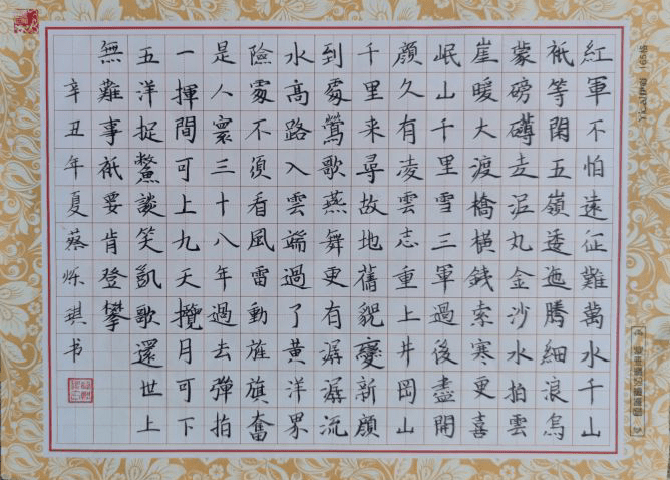 紅軍不怕遠征難萬水千山
衹等閑五嶺逶迤騰細浪烏
蒙磅礴走泥丸金沙水拍雲
崖暖大渡橋橫鉄索寒更喜
岷山千里雪三軍過後盡開
顏久有凌雲志重上井岡山
千里来尋故地舊貌變新顏
到處鶯歌燕舞更有潺潺流
水高路入雲端過了黃洋界
險處不須看風雷動旌旗奮
是人寰三十八年過去彈指
一揮間可上九天攬月可下
五洋捉鱉談笑凱歌還世上
無難事衹要肯登攀
辛丑年夏蔡烁琪书